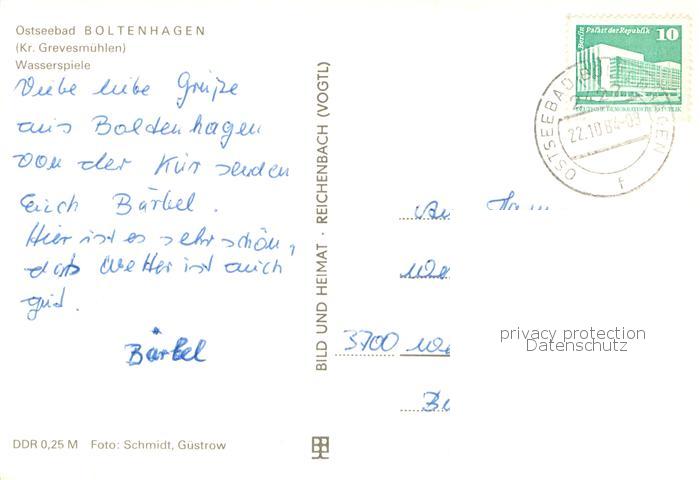 Ostseebad BOLTENHAGEN
(Kr. Grevesmühlen)
Wasserspiele
Viele liebe Grüße
aus Boldenhagen
von der Kur senden
Euch Bärbel.
Hier ist es sehr schön,
das Wetter ist auch
gut.
Bärbel
DDR 0,25 M Foto: Schmidt, Güstrow
BILD UND HEIMAT · REICHENBACH (VOGTL)
Berlin Palast der Republik 10
DEUTSCHE DEMOKRATISCHE REPUBLIK
OSTSEEBAD
22.10.84-09
HAGEN
f
An
3700
privacy protection
Datenschutz